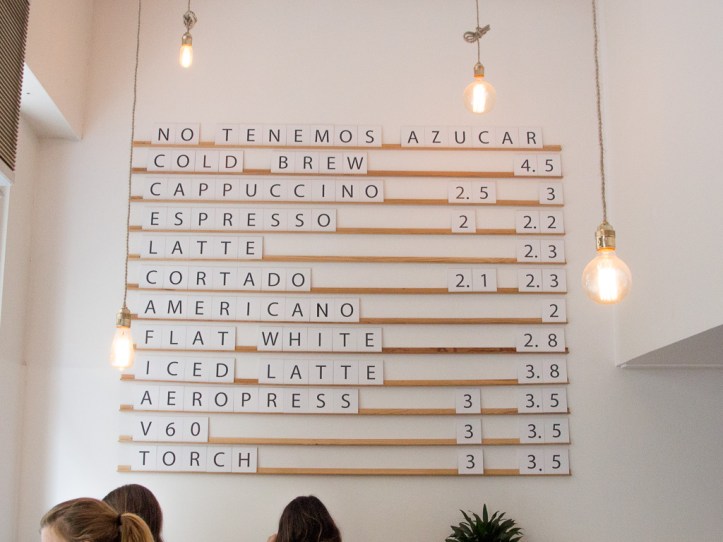 NO TENEMOS AZUCAR
COLD BREW 4.5
CAPPUCCINO 2.5 3
ESPRESSO 2 2.2
LATTE 2.3
CORTADO 2.1 2.3
AMERICANO 2
FLAT WHITE 2.8
ICED LATTE 3.8
AEROPRESS 3 3.5
V60 3 3.5
TORCH 3 3.5